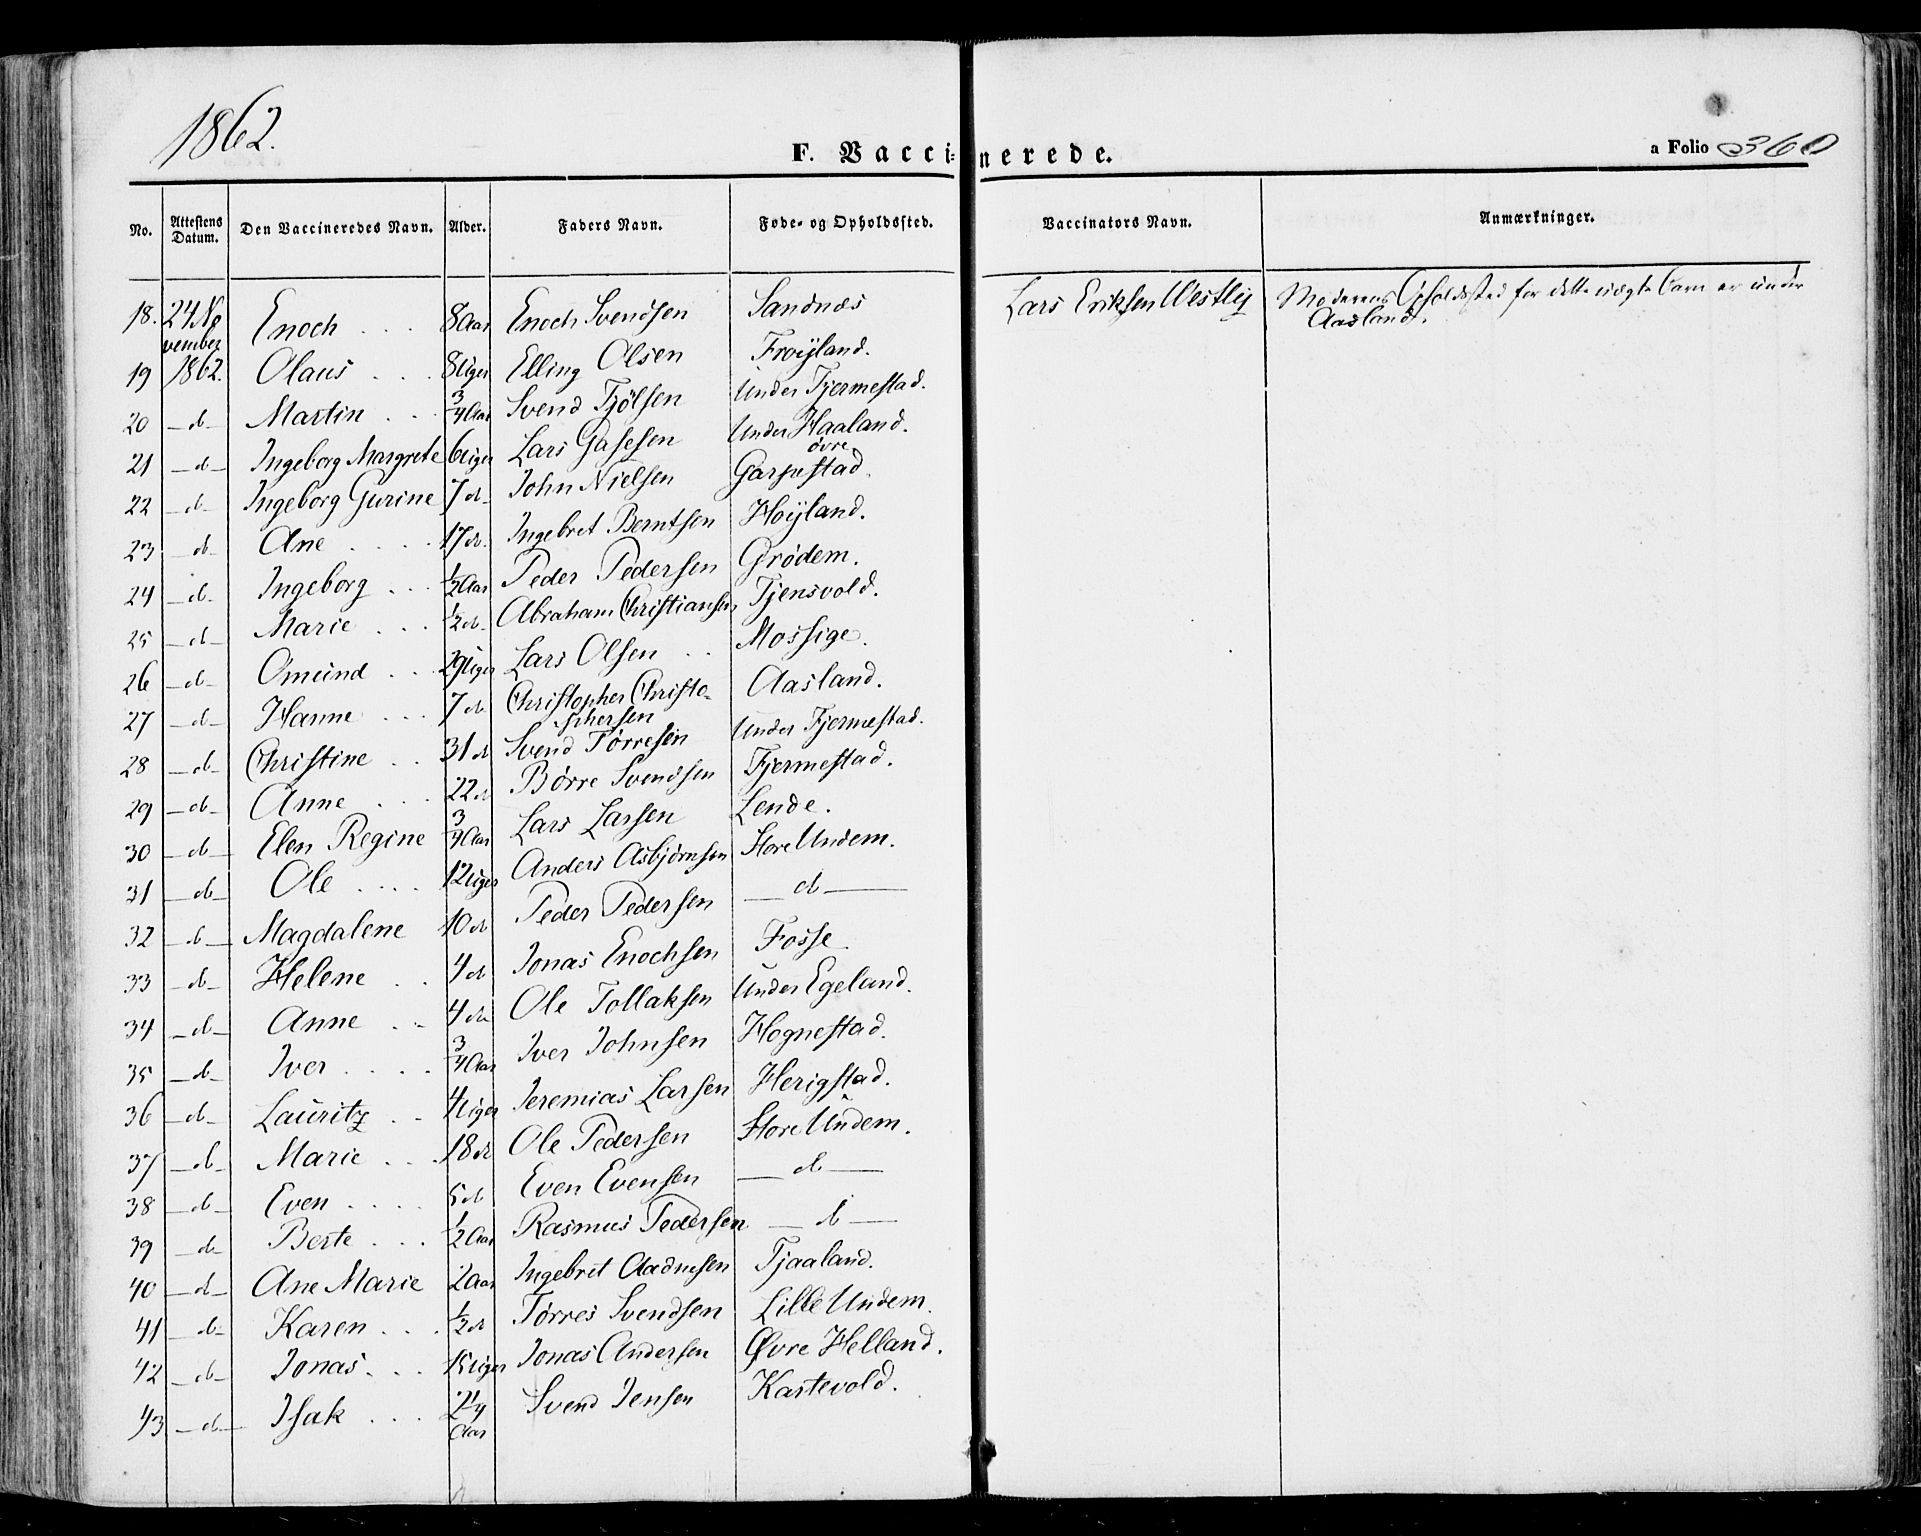 1862.
F. Vaccinerede.
a Folio 360
No. Attestens Datum. Den Vaccineredes Navn. Alder. Faders Navn. Føde- og Opholdssted. Vaccinators Navn. Anmærkninger.
18. 24 No vember Enoch . . . 8 Aar Enoch Svendsen Sandnæs Lars Eriksen Westly Moderens Opholdssted for dette uægte Barn er under Aasland.
19 1862. Olaus . . . 8 Uger Elling Olsen Frøÿland.
20 — d — Martin . . 3/4 Aar Svend Tjølsen Under Tjermestad.
21 — d — Ingeborg Margrete 6 Uger Lars Under Haaland.
22 — d — Ingeborg Gurine 7 d John Nielsen øvre Garpestad.
23 — d — Ane . . . . 17 d. Ingebret Berntsen Høÿland.
24 — d — Ingeborg . . . 1/2 Aar Peder Pedersen Grødem.
25 — d — Marie . . . 1/2 d. Abraham Christiansen Tjensvold.
26 — d — Omund . . . 29 Uger Lars Olsen . . Mossige.
27 — d — Hanne . . . 7 d Christopher Christo-phersen Aasland.
28 — d — Christine . . 31 d Svend Tørresen Under Tjermestad.
29 — d — Anne . . . 22 d Børre Svendsen Tjermestad.
30 — d — Elen Regine 3/4 Aar Lars Larsen Lende.
31 — d — Ole . . . . 12 Uger Anders Asbjørnsen Store Undem.
32 — d — Magdalene 10 d Peder Pedersen — d —
33 — d — Helene . . 4 d Jonas Enochsen Fosse.
34 — d — Anne . . 4 d. Ole Tollaksen Under Egeland.
35 — d — Iver . . . . 3/4 Aar Iver Johnsen Hognestad.
36 — d — Lauritz . . 4 Uger Jeremias Larsen Herigstad.
37 — d — Marie . . . 18 d Ole Pedersen Store Undem.
38 — d — Even . . . . 5 d Even Evensen — d —
39 — d — Berte . . . 1/2 Aar Rasmus Pedersen — d —
40 — d — Ane Marie 2 Aar Ingebret Aadnesen Tjaaland.
41 — d — Karen . . . 1/2 d Tørres Svendsen Lille Undem.
42 — d — Jonas . . . 15 Uger Jonas Andersen Øvre Helland.
43 — d — Isak . . . 2 1/4 Aar Svend Jensen Kartevold.